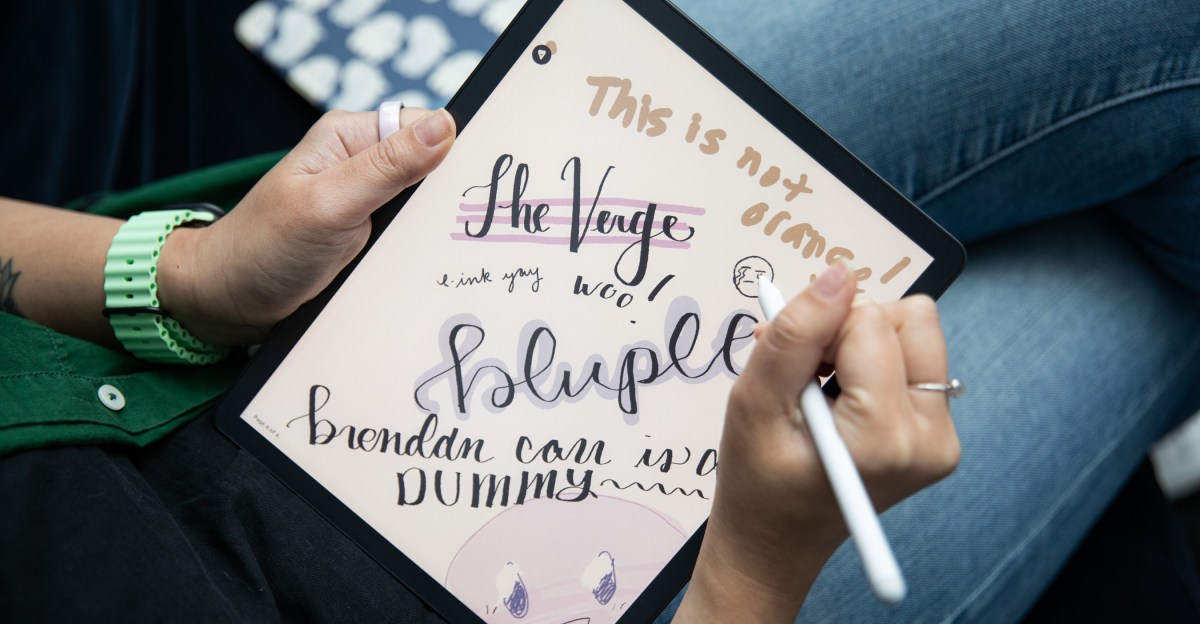 This is not
orange!
The Verge
e-ink yay woo!
bluple
brendan carr is a
DUMMY
Page 6 of 6